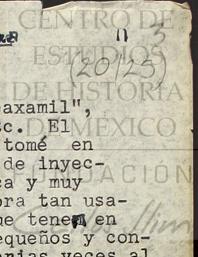 CENTRO DE
ESTUDIOS
DE HISTORIA
DE MÉXICO
FUNDACIÓN
(20/25)
axamil",
c. El
tomé en
de inyec-
ca y muy
ora tan usa-
ue tener en
equeños y con-
arias veces al